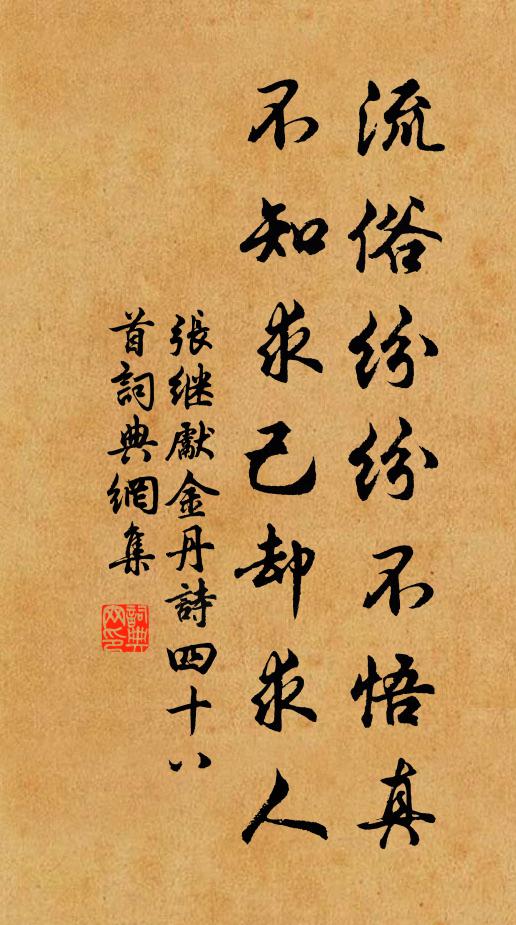 流俗紛紛不悟真
不知求己却求人
張继獻金丹詩四十八
首詞典網集
詞典
网印